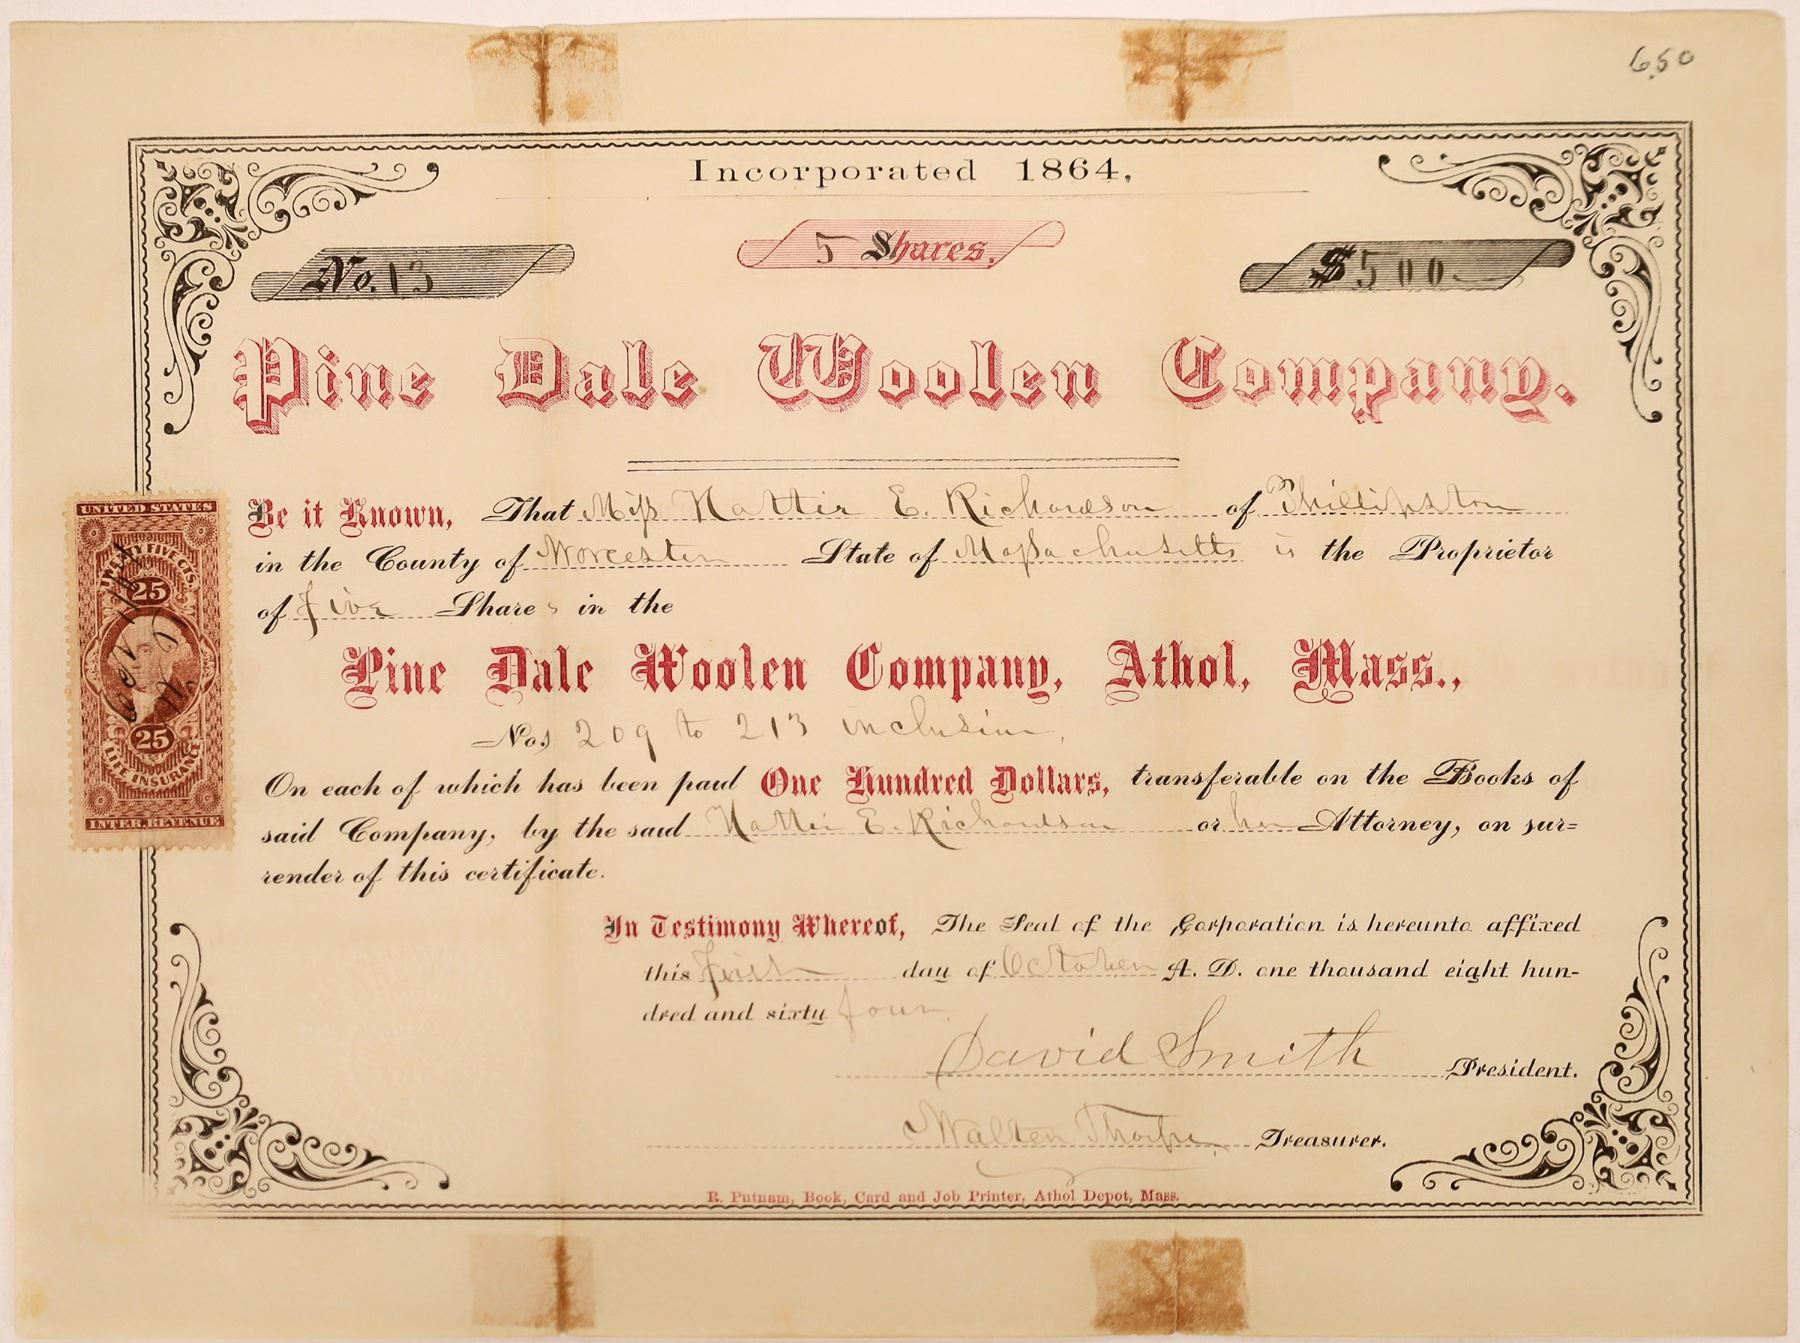 6.50
Incorporated 1864,
5 Shares.
No. 13
$500.
Pine Dale Woolen Company.
Be it Known, That Miss Hattie E. Richardson of Phillipston
in the County of Worcester State of Massachusetts is the Proprietor
of Five Shares in the
Pine Dale Woolen Company, Athol, Mass.,
Nos 209 to 213 inclusive,
On each of which has been paid One Hundred Dollars, transferable on the Books of
said Company, by the said Hattie E. Richardson or her Attorney, on sur=
render of this certificate.
In Testimony Whereof, The Seal of the Corporation is hereunto affixed
this First day of October A. D. one thousand eight hun-
dred and sixty four.
David Smith President.
Walter Thorpe Treasurer.
R. Putnam, Book, Card and Job Printer, Athol Depot, Mass.
UNITED STATES
TWENTY FIVE CTS.
25
25
LIFE INSURANCE
INTER. REVENUE